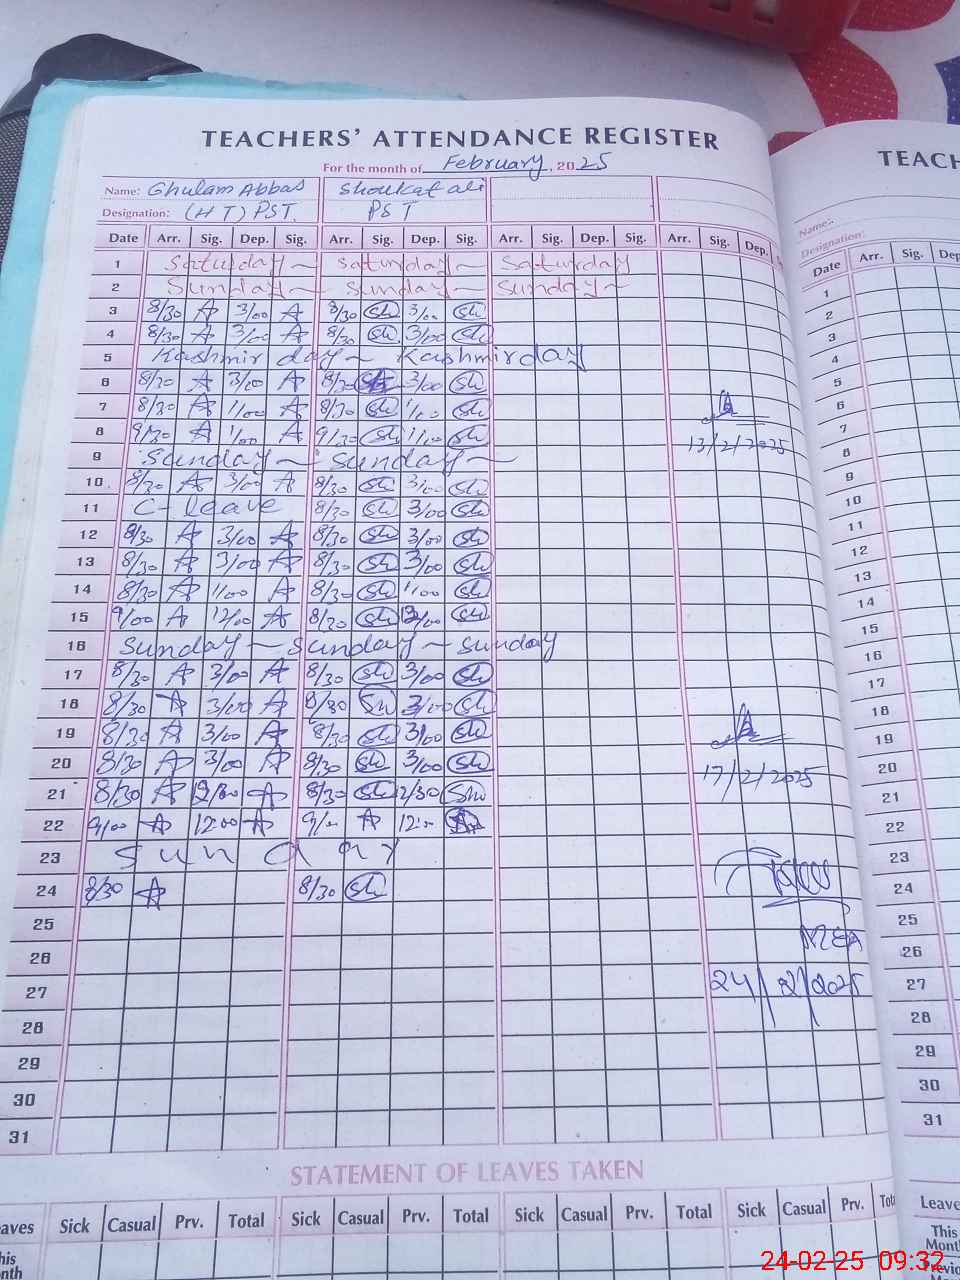 TEACHERS' ATTENDANCE REGISTER
For the month of February, 2025
Name: Ghulam Abbas Shoukat ali
Designation: (HT) PST. PST
Date Arr. Sig. Dep. Sig. Arr. Sig. Dep. Sig. Arr. Sig. Dep. Sig. Arr. Sig. Dep.
1 Saturday Saturday Saturday
2 Sunday Sunday Sunday
3 8/30 A 3/00 A 8/30 Sh 3/00 Sh
4 8/30 A 3/00 A 8/30 Sh 3/00 Sh
5 Kashmir day Kashmir day
6 8/30 A 3/00 A 8/30 3/00 Sh
7 8/30 A 1/00 A 8/30 Sh 1/00 Sh
8 9/30 A 1/00 A 9/30 Sh 1/00 Sh
13/2/2025
9 Sunday Sunday
10 8/30 A 3/00 A 8/30 Sh 3/00 Sh
11 C-leave 8/30 Sh 3/00 Sh
12 8/30 A 3/00 A 8/30 Sh 3/00 Sh
13 8/30 A 3/00 A 8/30 Sh 3/00 Sh
14 8/30 A 1/00 A 8/30 Sh 1/00 Sh
15 9/00 A 12/00 A 8/30 Sh 12/00 Sh
16 Sunday Sunday Sunday
17 8/30 A 3/00 A 8/30 Sh 3/00 Sh
18 8/30 A 3/00 A 8/30 Sh 3/00 Sh
19 8/30 A 3/00 A 8/30 Sh 3/00 Sh
20 8/30 A 3/00 A 8/30 Sh 3/00 Sh
17/2/2025
21 8/30 A 12/30 A 8/30 Sh 12/30 Sh
22 9/00 A 12:00 A 9/00 A 12:00
23 Sunday
24 8/30 A 8/30 Sh
25
26
MEA
27
24/2/2025
28
29
30
31
STATEMENT OF LEAVES TAKEN
Sick Casual Prv. Total Sick Casual Prv. Total Sick Casual Prv. Total Sick Casual Prv.
TEACH
Name:
Designation:
Date Arr. Sig.
1
2
3
4
5
6
7
8
9
10
11
12
13
14
15
16
17
18
19
20
21
22
23
24
25
26
27
28
29
30
31
Leaves
This
24-02-25 09:32